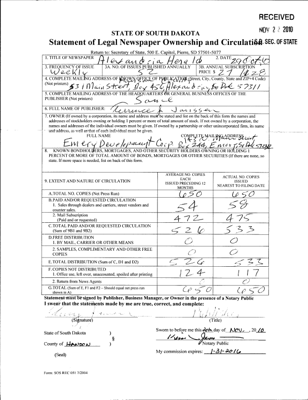 RECEIVED
NOV 22 2010
S.D. SEC. OF STATE
STATE OF SOUTH DAKOTA
Statement of Legal Newspaper Ownership and Circulation
Return to: Secretary of State, 500 E. Capitol, Pierre, SD 57501-5077
1. TITLE OF NEWSPAPER Alexandria Herald
2. DATE
3. FREQUENCY OF ISSUE Weekly
3A. NO. OF ISSUES PUBLISHED ANNUALLY 52
3B. ANNUAL SUBSCRIPTION PRICE $
4. COMPLETE MAILING ADDRESS
(Not printers)
5. COMPLETE MAILING ADDRESS OF THE HEADQUARTERS OR GENERAL BUSINESS OFFICES OF THE
PUBLISHER (Not printer) Same
6. FULL NAME OF PUBLISHER:
7. OWNER (If owned by a corporation, its name and address must be stated and also on the back of this form the names and
addresses of stockholders owning or holding 1 percent or more of total amount of stock. If not owned by a corporation, the
names and addresses of the individual owners must be given. If owned by a partnership or other unincorporated firm, its name
and address, as well as that of each individual must be given.)
FULL NAME
COMPLETE MAILING ADDRESS
Emery Development Corp
8. KNOWN BONDHOLDERS, MORTGAGES, AND OTHER SECURITY HOLDERS OWNING OR HOLDING 1
PERCENT OR MORE OF TOTAL AMOUNT OF BONDS, MORTGAGES OR OTHER SECURITIES (If there are none, so
state. If more space is needed, list on back of this form)
9. EXTENT AND NATURE OF CIRCULATION
AVERAGE NO. COPIES EACH ISSUE PRECEDING 12 MONTHS
ACTUAL NO. COPIES ISSUED NEAREST TO FILING DATE
A. TOTAL NO. COPIES (Net Press Run) 650 650
B. PAID AND/OR REQUESTED CIRCULATION
1. Sales through dealers and carriers, street vendors and
counter sales. 54 58
2. Mail Subscription
(Paid and/or requested) 472 475
C. TOTAL PAID AND/OR REQUESTED CIRCULATION
(Sum of 9B1 and 9B2) 526 533
D. FREE DISTRIBUTION
1. BY MAIL, CARRIER OR OTHER MEANS 0 0
2. SAMPLES, COMPLIMENTARY AND OTHER FREE
COPIES 0 0
E. TOTAL DISTRIBUTION (Sum of C, D1 and D2) 526 533
F. COPIES NOT DISTRIBUTED
1. Office use, left over, unaccounted, spoiled after printing 124 117
2. Return from News Agents
G. TOTAL (Sum of E, F1 and F2 - Should equal net press run shown in A) 650 650
Statement must be signed by Publisher, Business Manager, or Owner in the presence of a Notary Public
I swear that the statements made by me are true, correct, and complete:
(Signature) (Title)
State of South Dakota )
County of Hanson )
(Seal)
Sworn to before me this day of Nov. 2010
Notary Public
My commission expires: 1-31-2016